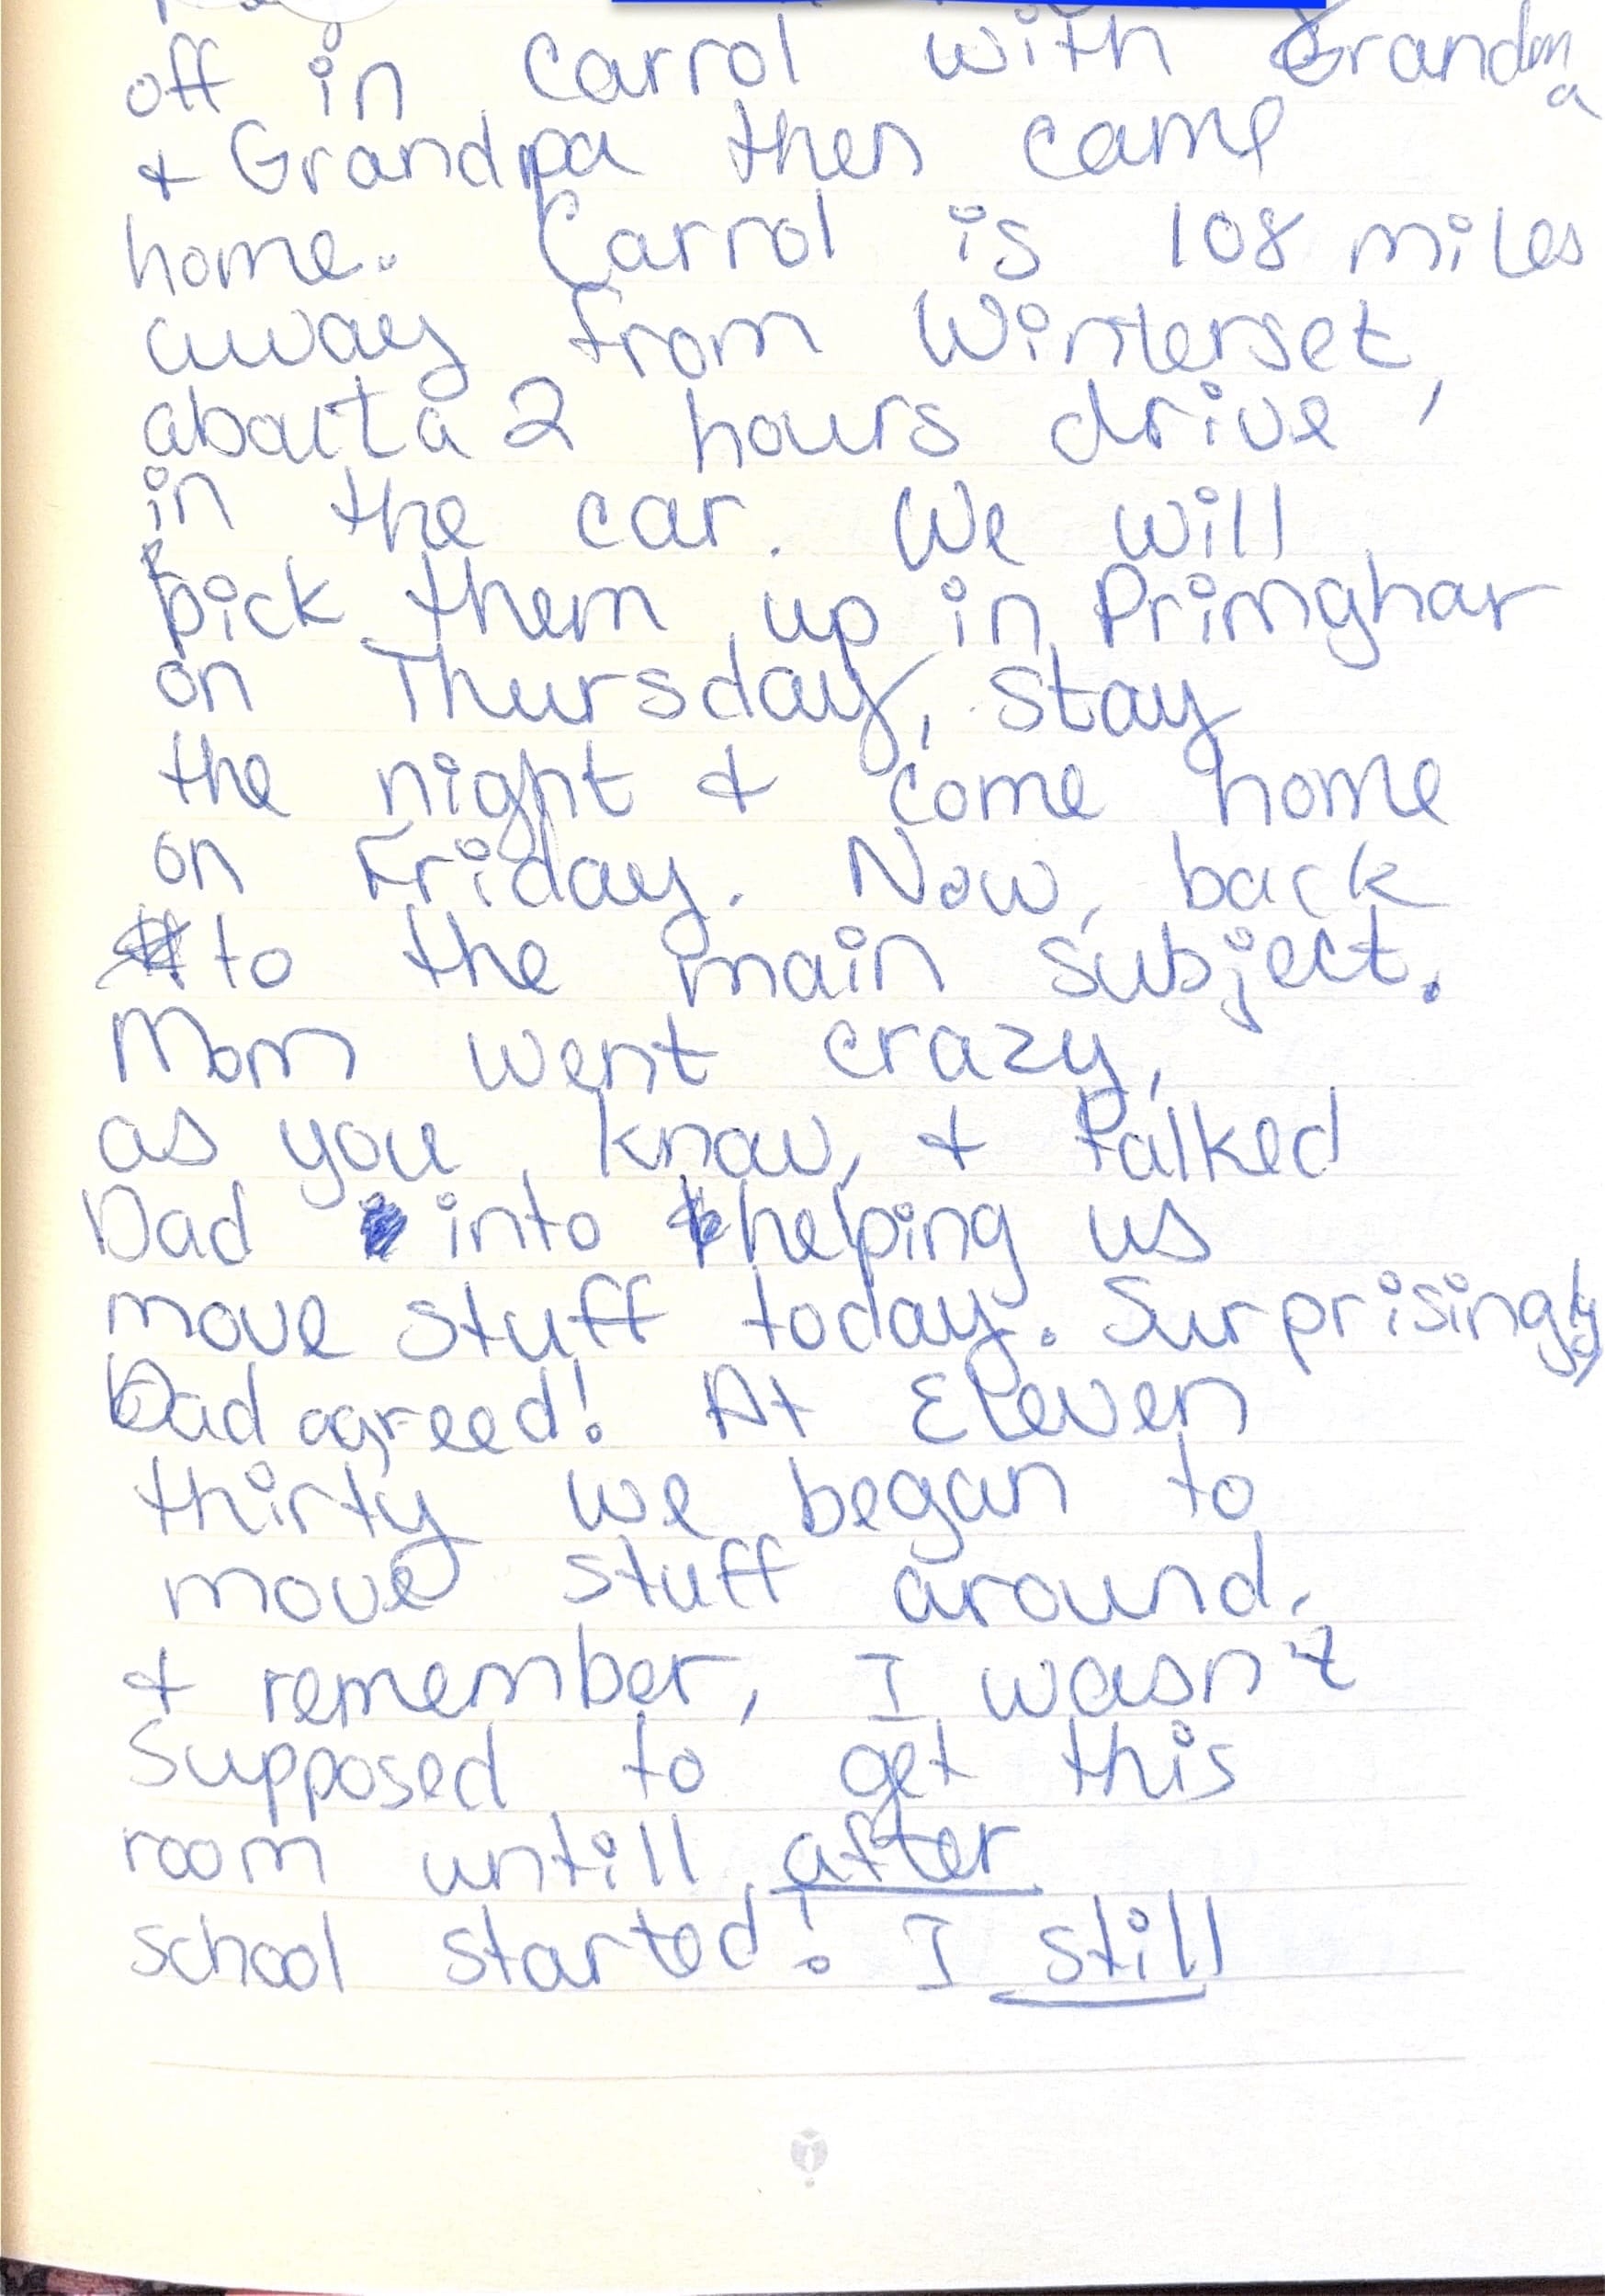 off in Carrol with Grandma
& Grandpa then came
home. Carrol is 108 miles
away from Winterset,
about a 2 hours drive
in the car. We will
pick them up in Primghar
on Thursday, stay
the night & come home
on Friday. Now, back
to the main subject.
Mom went crazy,
as you know, & talked
Dad into helping us
move stuff today. Surprisingly
Dad agreed! At Eleven
thirty we began to
move stuff around.
& remember, I wasn't
Supposed to get this
room untill after
school started! I still